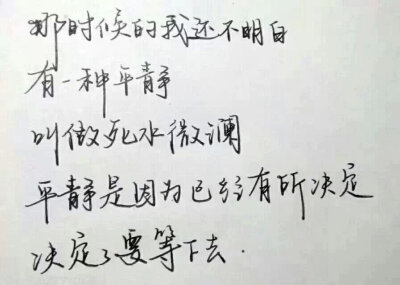 那时候的我还不明白
有一种平静
叫做死水微澜
平静是因为已经有所决定
决定了要等下去.